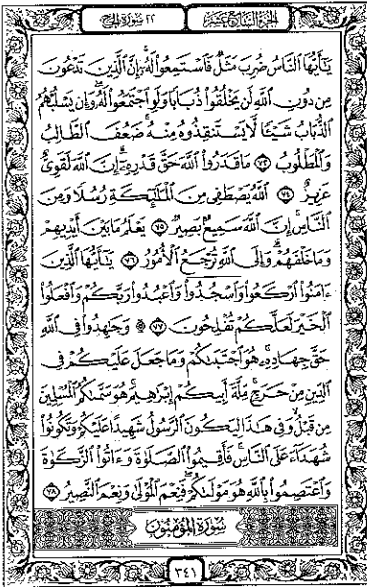 الجزء السابع عشر
٢٢ سورة الحج
يَٰٓأَيُّهَا ٱلنَّاسُ ضُرِبَ مَثَلٌ فَٱسْتَمِعُوا۟ لَهُۥٓ إِنَّ ٱلَّذِينَ تَدْعُونَ
مِن دُونِ ٱللَّهِ لَن يَخْلُقُوا۟ ذُبَابًا وَلَوِ ٱجْتَمَعُوا۟ لَهُۥ وَإِن يَسْلُبْهُمُ
ٱلذُّبَابُ شَيْـًٔا لَّا يَسْتَنقِذُوهُ مِنْهُ ضَعُفَ ٱلطَّالِبُ
وَٱلْمَطْلُوبُ ٧٣ مَا قَدَرُوا۟ ٱللَّهَ حَقَّ قَدْرِهِۦٓ إِنَّ ٱللَّهَ لَقَوِىٌّ
عَزِيزٌ ٧٤ ٱللَّهُ يَصْطَفِى مِنَ ٱلْمَلَٰٓئِكَةِ رُسُلًا وَمِنَ
ٱلنَّاسِ إِنَّ ٱللَّهَ سَمِيعٌۢ بَصِيرٌ ٧٥ يَعْلَمُ مَا بَيْنَ أَيْدِيهِمْ
وَمَا خَلْفَهُمْ وَإِلَى ٱللَّهِ تُرْجَعُ ٱلْأُمُورُ ٧٦ يَٰٓأَيُّهَا ٱلَّذِينَ
ءَامَنُوا۟ ٱرْكَعُوا۟ وَٱسْجُدُوا۟ وَٱعْبُدُوا۟ رَبَّكُمْ وَٱفْعَلُوا۟
ٱلْخَيْرَ لَعَلَّكُمْ تُفْلِحُونَ ۩ ٧٧ وَجَٰهِدُوا۟ فِى ٱللَّهِ
حَقَّ جِهَادِهِۦ هُوَ ٱجْتَبَىٰكُمْ وَمَا جَعَلَ عَلَيْكُمْ فِى
ٱلدِّينِ مِنْ حَرَجٍ مِّلَّةَ أَبِيكُمْ إِبْرَٰهِيمَ هُوَ سَمَّىٰكُمُ ٱلْمُسْلِمِينَ
مِن قَبْلُ وَفِى هَٰذَا لِيَكُونَ ٱلرَّسُولُ شَهِيدًا عَلَيْكُمْ وَتَكُونُوا۟
شُهَدَآءَ عَلَى ٱلنَّاسِ فَأَقِيمُوا۟ ٱلصَّلَوٰةَ وَءَاتُوا۟ ٱلزَّكَوٰةَ
وَٱعْتَصِمُوا۟ بِٱللَّهِ هُوَ مَوْلَىٰكُمْ فَنِعْمَ ٱلْمَوْلَىٰ وَنِعْمَ ٱلنَّصِيرُ ٧٨
سورة المؤمنون
٣٤١